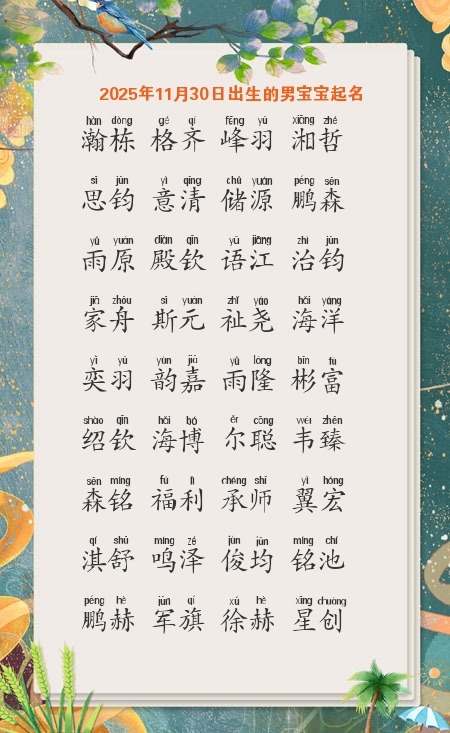 2025年11月30日出生的男宝宝起名
hàn dòng gé qí fēng yǔ xiāng zhé
瀚栋 格齐 峰羽 湘哲
sī jūn yì qīng chǔ yuán péng sēn
思钧 意清 储源 鹏森
yǔ yuán diàn qīn yǔ jiāng zhì jūn
雨原 殿钦 语江 治钧
jiā zhōu sī yuán zhǐ yáo hǎi yáng
家舟 斯元 祉尧 海洋
yì yǔ yùn jiā yǔ lóng bīn fù
奕羽 韵嘉 雨隆 彬富
shào qīn hǎi bó ěr cōng wéi zhēn
绍钦 海博 尔聪 韦臻
sēn míng fú lì chéng shī yì hóng
森铭 福利 承师 翼宏
qí shū míng zé jùn jūn míng chí
淇舒 鸣泽 俊均 铭池
péng hè jūn qí xú hè xīng chuàng
鹏赫 军旗 徐赫 星创